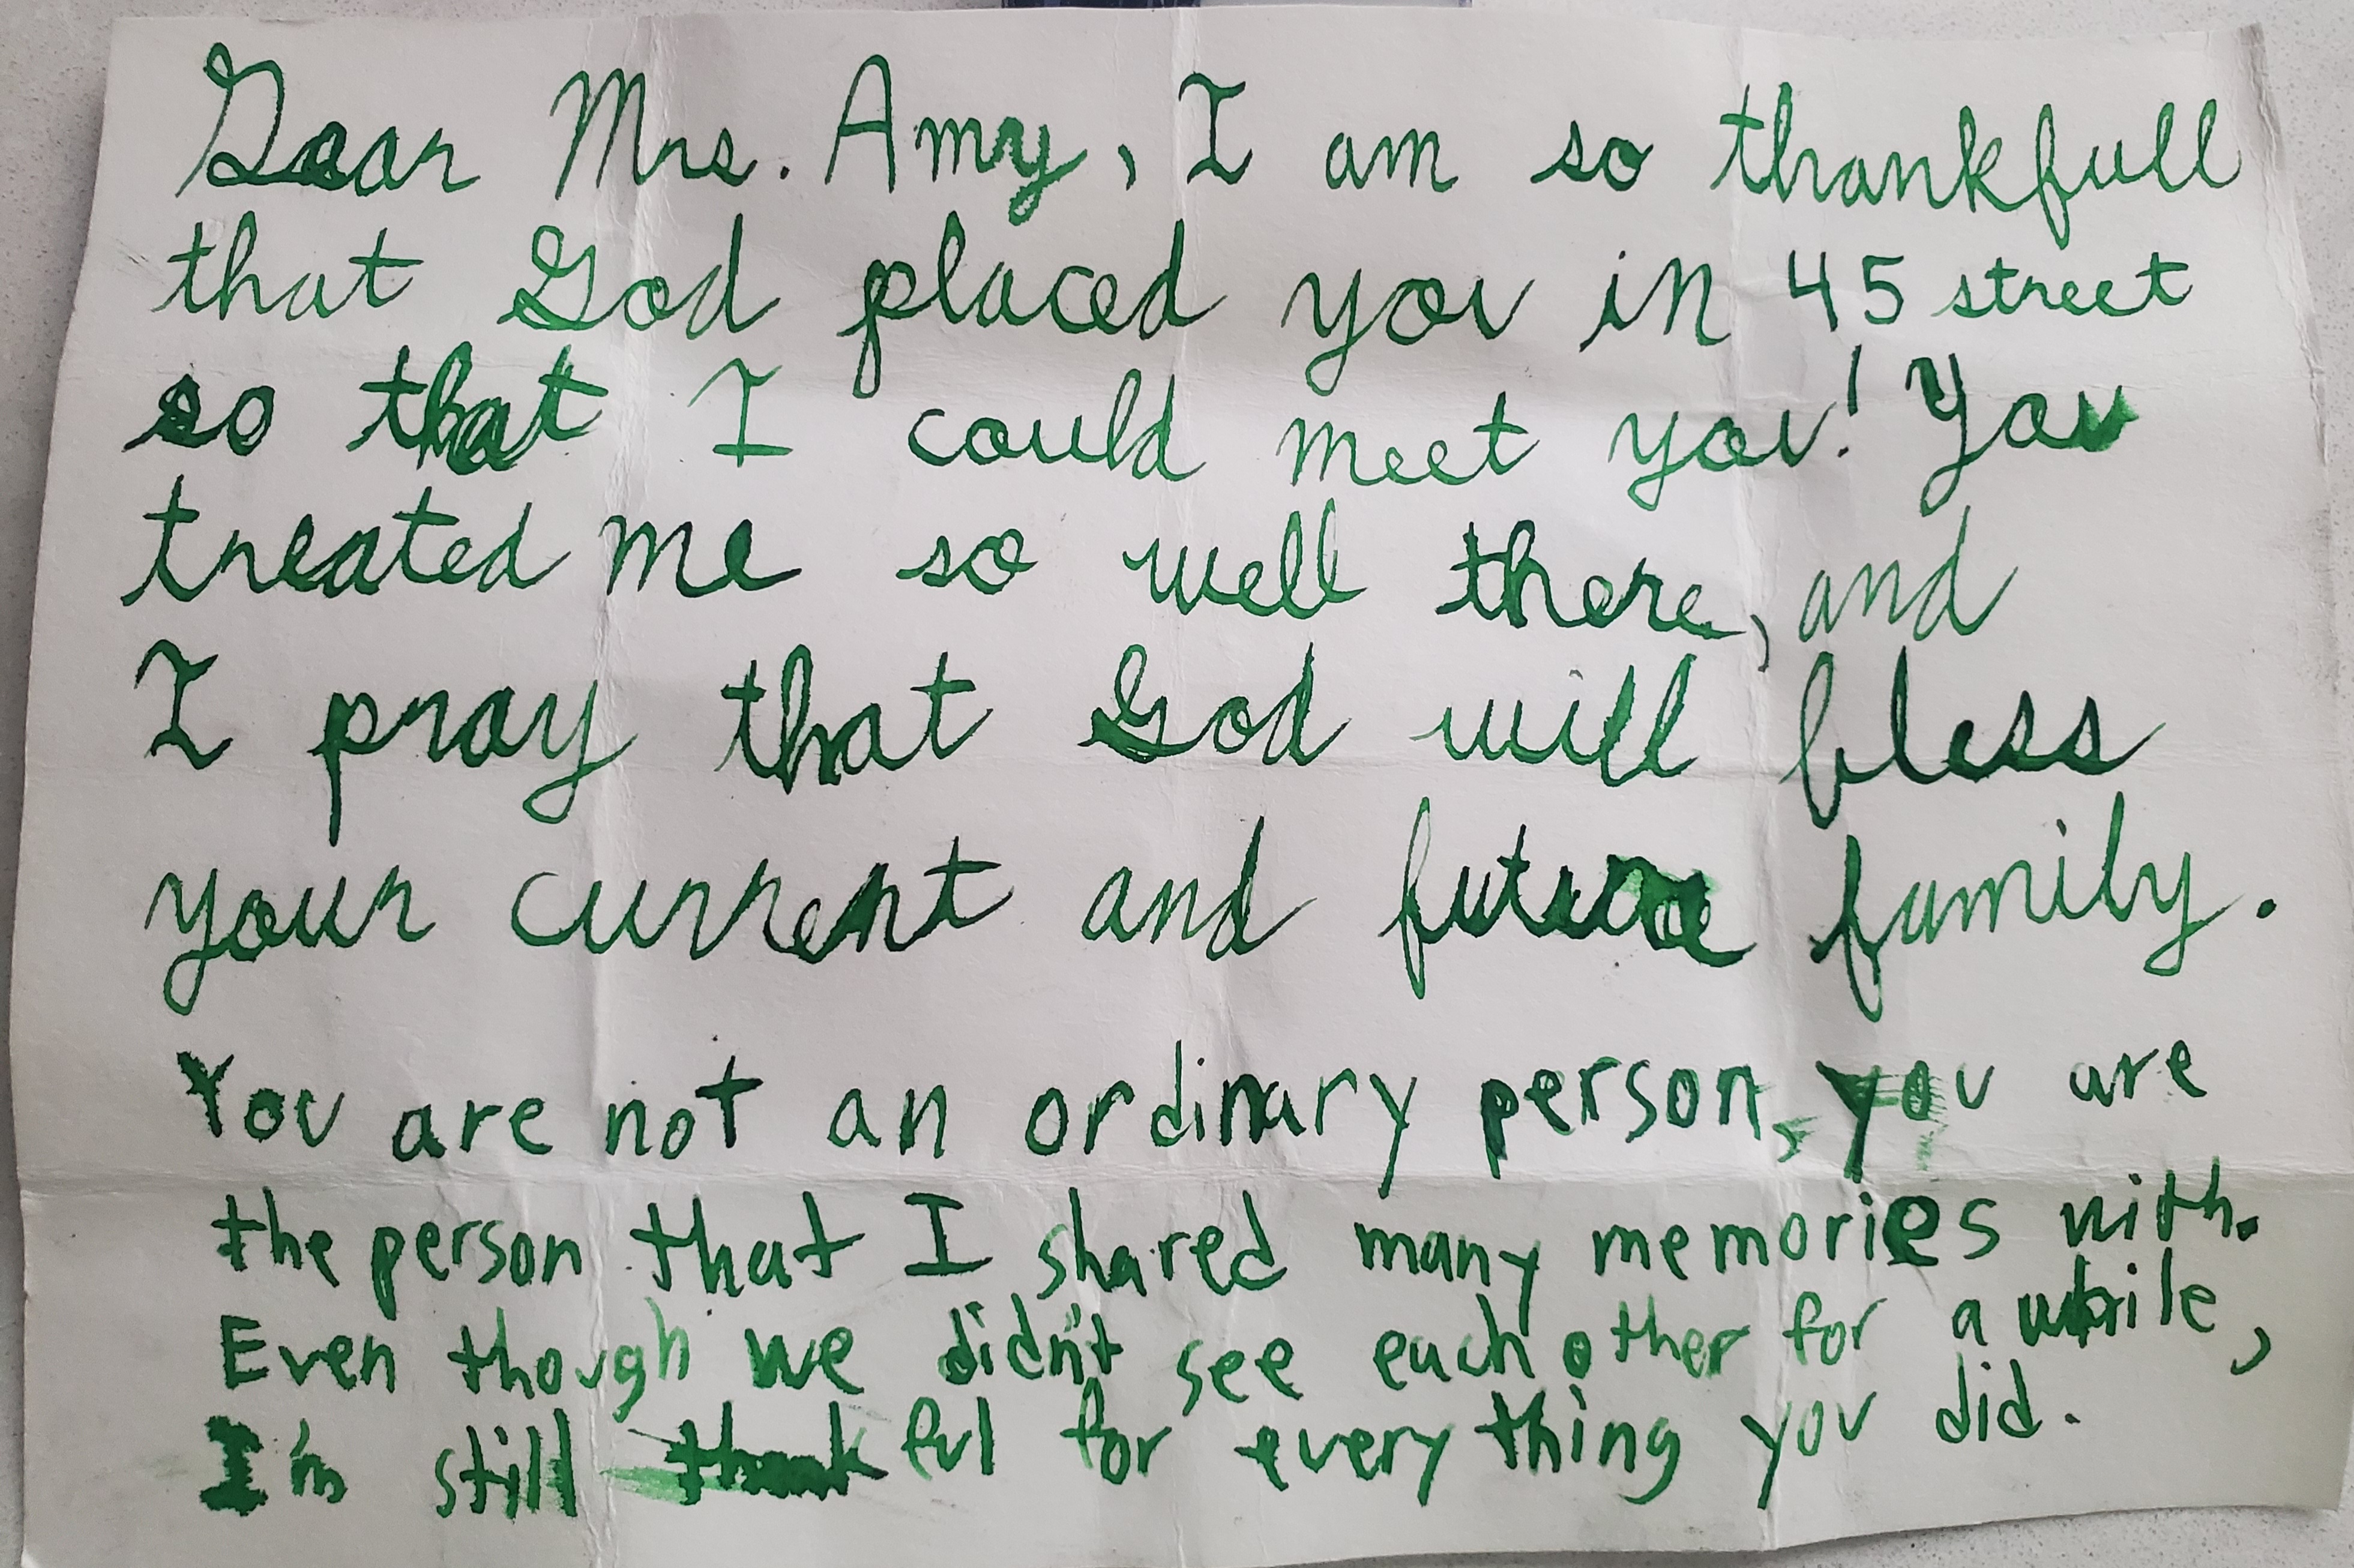 Dear Mrs. Amy, I am so thankfull
that God placed you in 45 street
so that I could meet you! You
treated me so well there, and
I pray that God will bless
your current and future family.
You are not an ordinary person, you are
the person that I shared many memories with.
Even though we didn't see each other for a while,
I'm still thankful for everything you did.